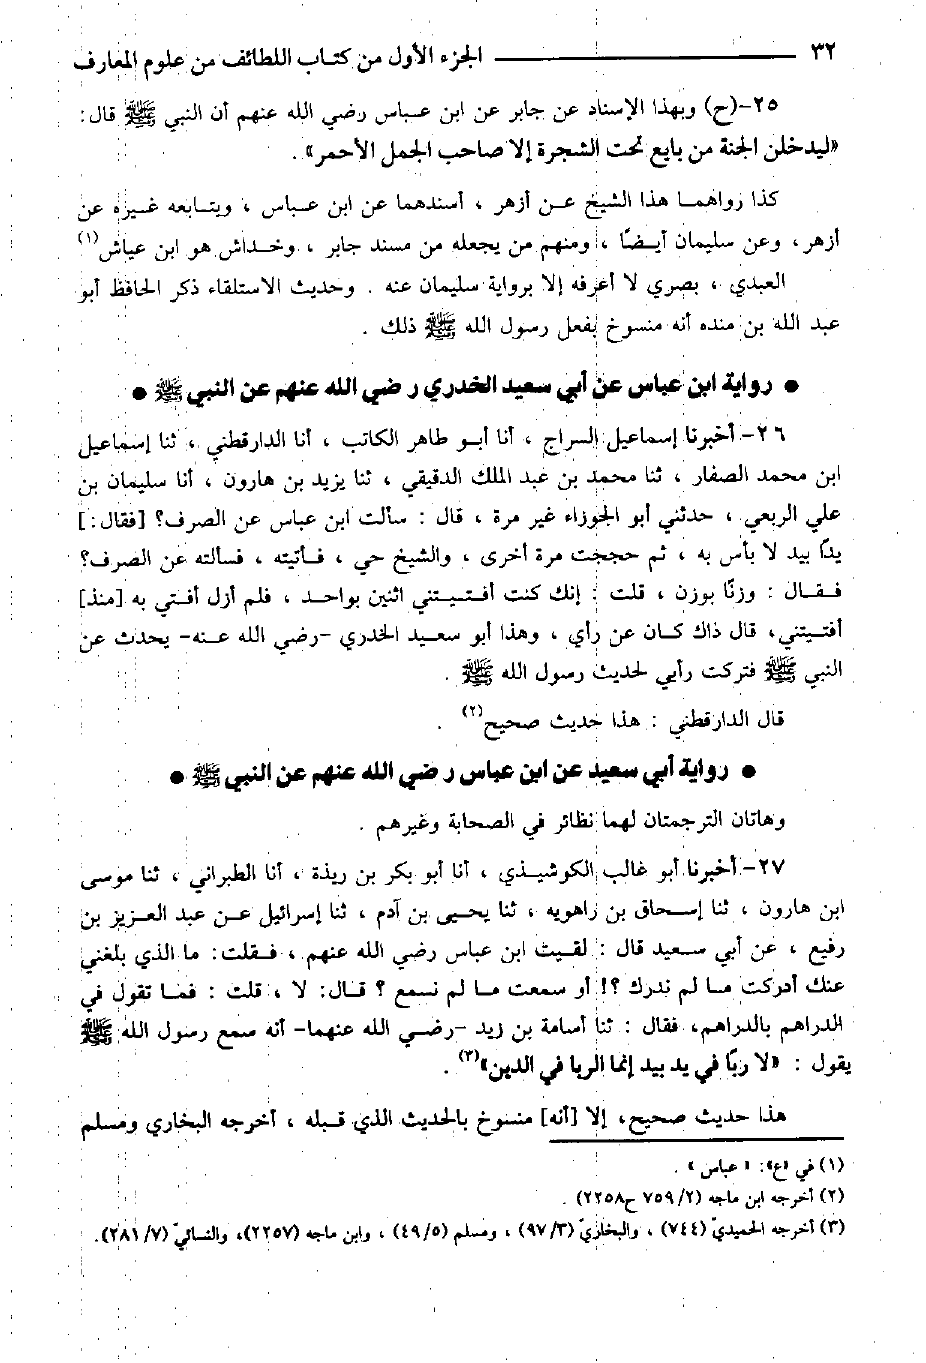 ٣٢ الجزء الأول من كتاب اللطائف من علوم المعارف
٢٥-(ح) وبهذا الإسناد عن جابر عن ابن عباس رضي الله عنهم أن النبي ﷺ قال:
«ليدخلن الجنة من بايع تحت الشجرة إلا صاحب الجمل الأحمر» .
كذا رواهما هذا الشيخ عن أزهر ، أسندهما عن ابن عباس ، ويتابعه غيره عن
أزهر، وعن سليمان أيضًا ، ومنهم من يجعله من مسند جابر ، وخداش هو ابن عياش(١)
العبدي ، بصري لا أعرفه إلا برواية سليمان عنه . وحديث الاستلقاء ذكر الحافظ أبو
عبد الله بن منده أنه منسوخ بفعل رسول الله ﷺ ذلك .
● رواية ابن عباس عن أبي سعيد الخدري رضي الله عنهم عن النبي ﷺ ●
٢٦- أخبرنا إسماعيل السراج ، أنا أبو طاهر الكاتب ، أنا الدارقطني ، ثنا إسماعيل
ابن محمد الصفار ، ثنا محمد بن عبد الملك الدقيقي ، ثنا يزيد بن هارون ، أنا سليمان بن
علي الربعي ، حدثني أبو الجوزاء غير مرة ، قال : سألت ابن عباس عن الصرف؟ [فقال:]
يدًا بيد لا بأس به ، ثم حججت مرة أخرى ، والشيخ حي ، فأتيته ، فسألته عن الصرف؟
فقال : وزنًا بوزن ، قلت : إنك كنت أفتيتني اثنين بواحد ، فلم أزل أفتي به [منذ]
أفتيتني، قال ذاك كان عن رأي ، وهذا أبو سعيد الخدري -رضي الله عنه- يحدث عن
النبي ﷺ فتركت رأيي لحديث رسول الله ﷺ .
قال الدارقطني : هذا حديث صحيح(٢) .
● رواية أبي سعيد عن ابن عباس رضي الله عنهم عن النبي ﷺ ●
وهاتان الترجمتان لهما نظائر في الصحابة وغيرهم .
٢٧- أخبرنا أبو غالب الكوشيذي ، أنا أبو بكر بن ريذة ، أنا الطبراني ، ثنا موسى
ابن هارون ، ثنا إسحاق بن راهويه ، ثنا يحيى بن آدم ، ثنا إسرائيل عن عبد العزيز بن
رفيع ، عن أبي سعيد قال : لقيت ابن عباس رضي الله عنهم ، فقلت: ما الذي بلغني
عنك أدركت ما لم ندرك ؟! أو سمعت ما لم نسمع ؟ قال: لا ، قلت : فما تقول في
الدراهم بالدراهم، فقال : ثنا أسامة بن زيد -رضي الله عنهما- أنه سمع رسول الله ﷺ
يقول : «لا ربًا في يد بيد إنما الربا في الدين»(٣) .
هذا حديث صحيح، إلا [أنه] منسوخ بالحديث الذي قبله ، أخرجه البخاري ومسلم
(١) في «ع»: « عباس » .
(٢) أخرجه ابن ماجه (٢/ ٧٥٩ ح٢٢٥٨) .
(٣) أخرجه الحميديّ (٧٤٤) ، والبخاريّ (٩٧/٣) ، ومسلم (٤٩/٥) ، وابن ماجه (٢٢٥٧)، والنسائيّ (٢٨١/٧).